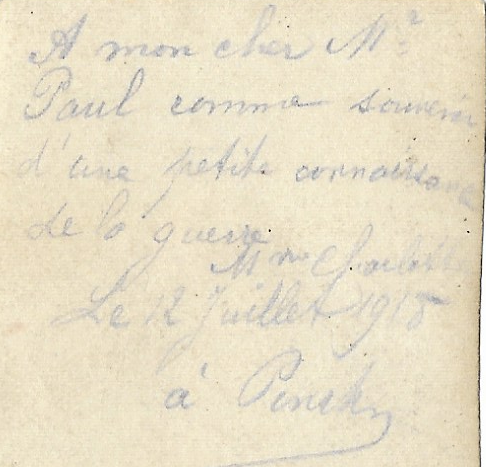 A mon cher Mr
Paul comme souvenir
d'une petite connaissance
de la guerre
Mme Charlotte
Le 12 Juillet 1918
à Pinsk